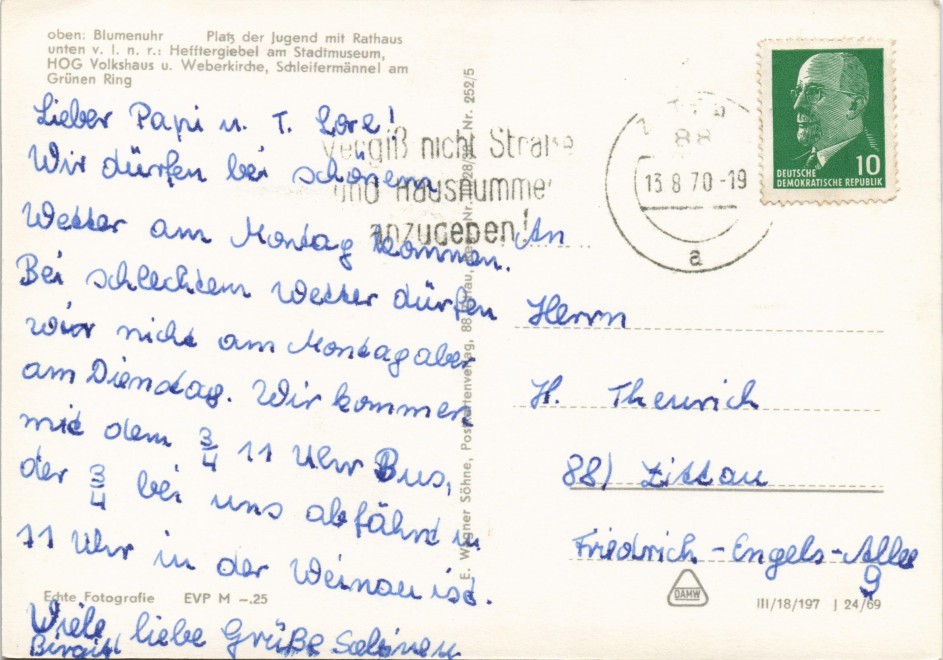 oben: Blumenuhr Platz der Jugend mit Rathaus
unten v. l. n. r.: Hefftergiebel am Stadtmuseum,
HOG Volkshaus u. Weberkirche, Schleifermännel am
Grünen Ring
Lieber Papi u. T. Lore!
Wir dürfen bei schönem
Wetter am Montag kommen.
Bei schlechtem Wetter dürfen
wir nicht am Montag aber
am Dienstag. Wir kommen
mit dem 3/4 11 Uhr Bus,
der 3/4 bei uns abfährt u
11 Uhr in der Weinau ist.
Viele liebe Grüße
Birgitt
Echte Fotografie EVP M –.25
E. Wagner Söhne, Postkartenverlag, 88 Zittau, Nr. 252/5
Vergiß nicht Straße
und Hausnummer
anzugeben!
88
13.8.70-19
a
DEUTSCHE
DEMOKRATISCHE REPUBLIK
10
An
Herrn
H. Theurich
88) Zittau
Friedrich-Engels-Allee
9
DAMW
III/18/197 J 24/69